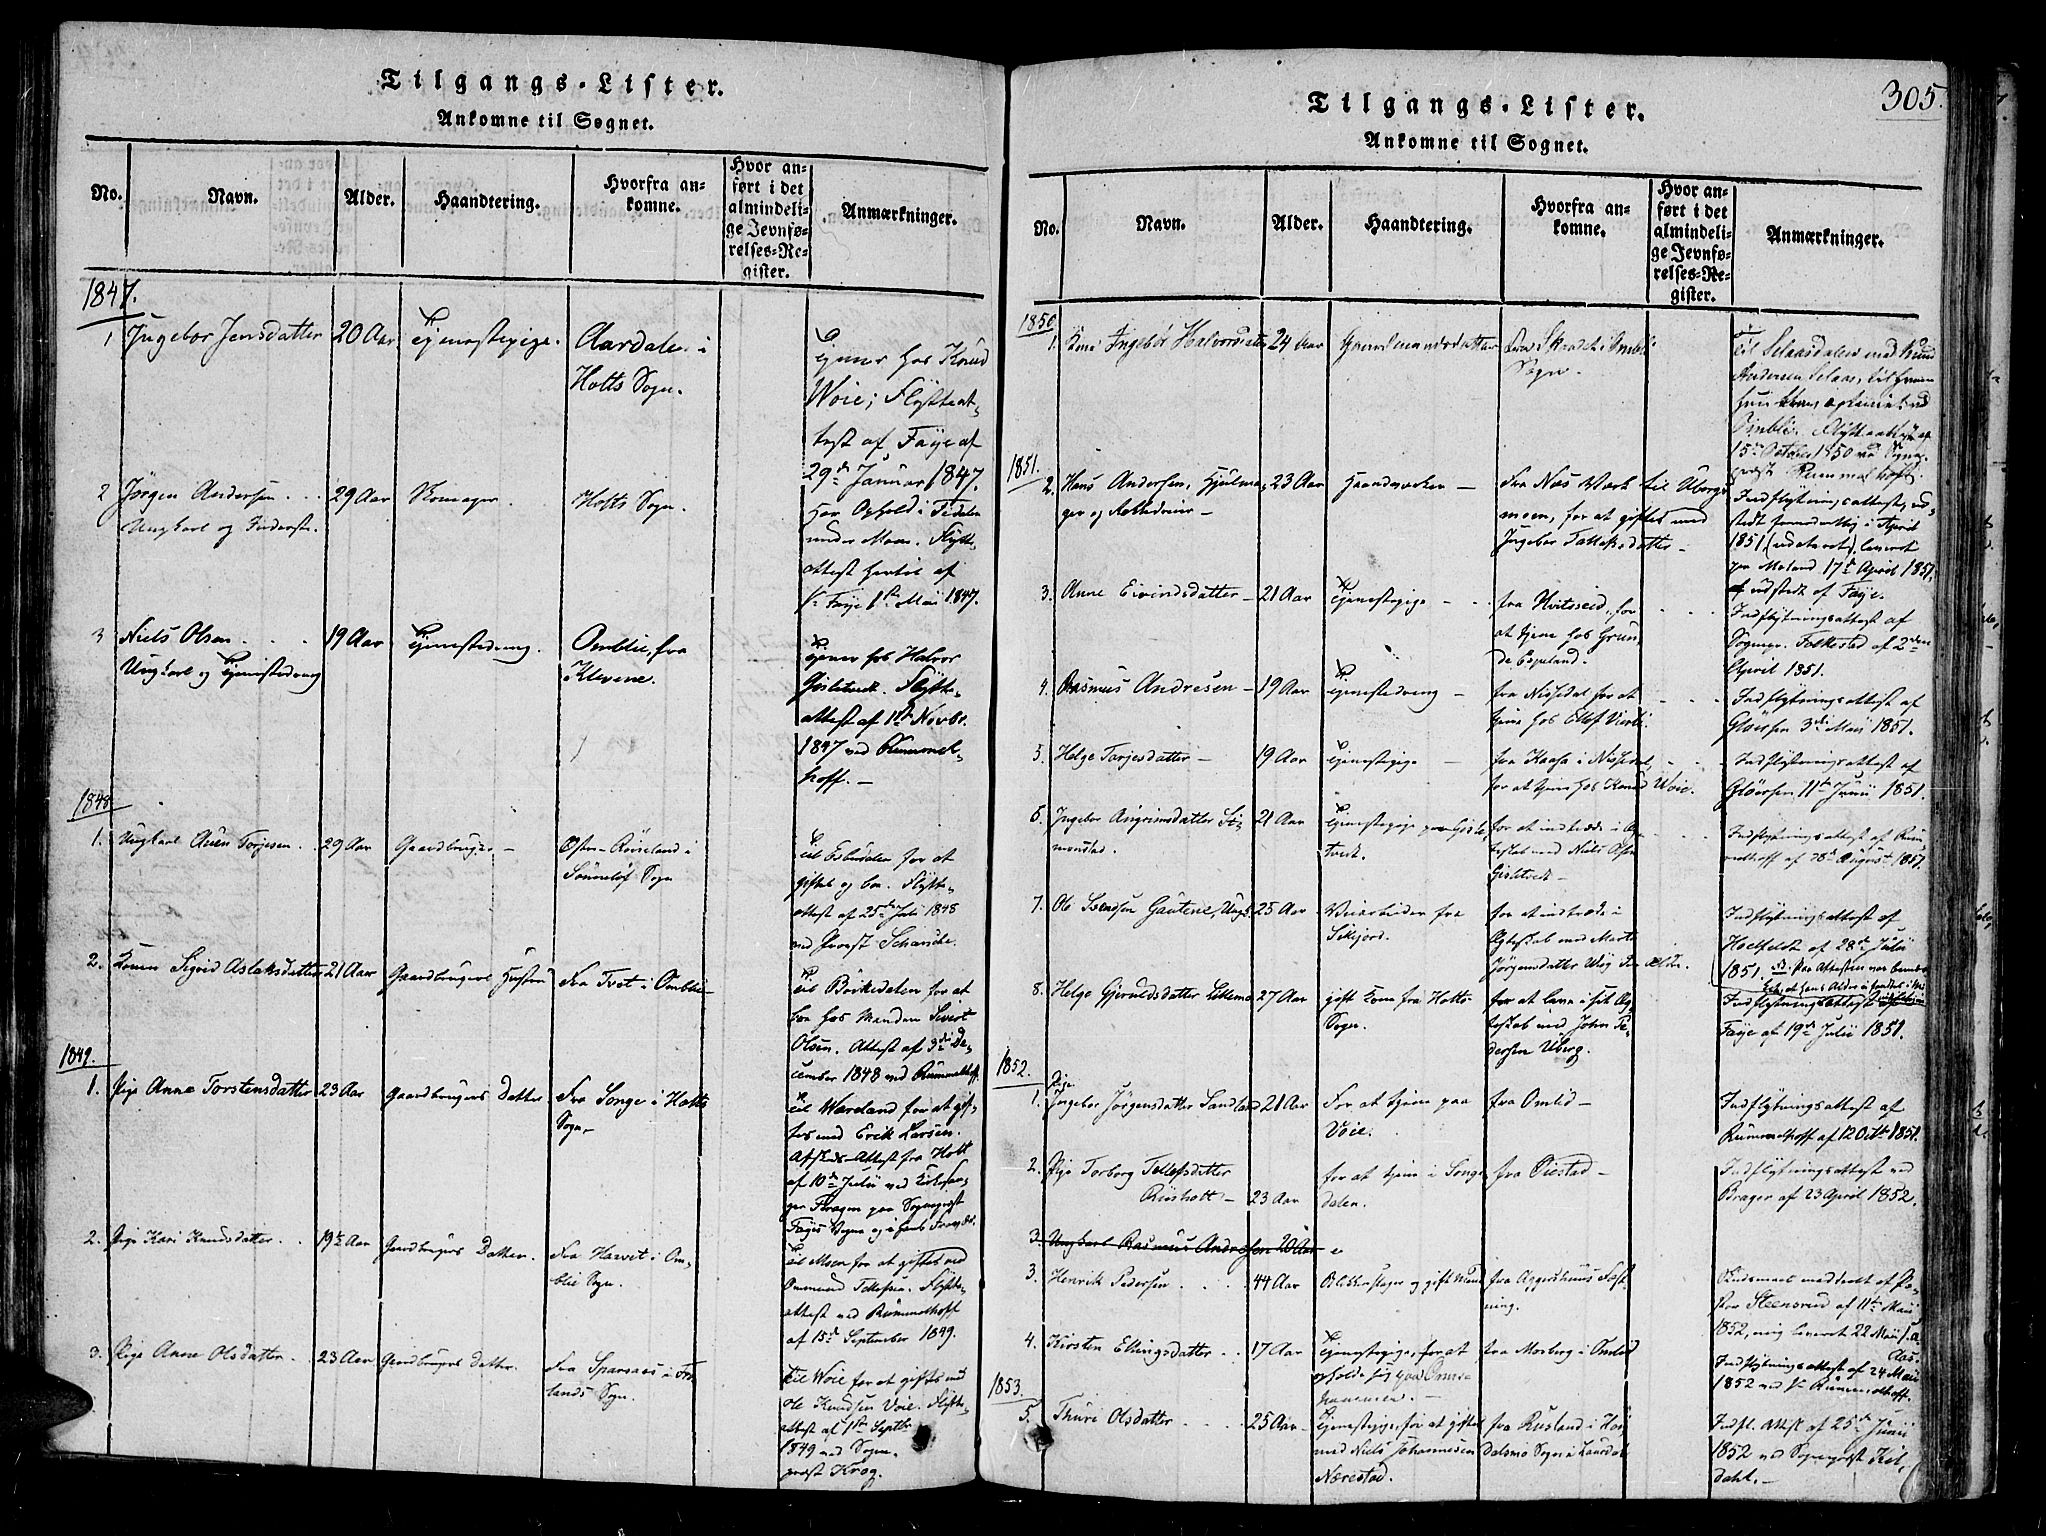 Tilgangs-Lister.
Ankomne til Sognet.
No.
Navn.
Alder.
Haandtering.
Hvorfra an-
komne.
Hvor an-
ført i det
almindeli-
ge Jevnfø-
relses-Re-
gister.
Anmærkninger.
1847.
1 Ingebor Jensdatter 20 Aar Tjenestepige. Aardalen i
Holts Sogn.
Tjener hos Knud
Woie; Flytteat-
test af Faye af
29de Januar 1847.
2 Jørgen Andersen 29 Aar Skomager. Holts Sogn.
Ungkarl og
Har Ophold i
under Moen. Flytte-
attest hertil af
Faye 1ste Mai 1847.
3 Niels Olsen 19 Aar Tjenestedreng. Omblie, fra
Ungkarl og Tjenestedreng
Klevene.
Tjener hos Halvor
Gislstvedt. Flytte-
attest af 1ste Novbr.
1847 ved Rummel-
hoff.
1848
1. Ungkarl Auen Torjesen 29 Aar Gaardbruger Østre-Røiseland i
Sønneløf Sogn
Til Esbudalen for at
giftes og boe. Flytte-
attest af 25de Juli 1848
ved Provst Schanche.
2. Konen Sigrid Aslaksdatter 21 Aar Gaardbrugers Hustru Fra Tvet i Omblie
Til Børkedalen for at
boe hos Manden Sivert
Olsen. Attest af 3die De-
cember 1848 ved Rummelhoff
1849.
1. Pige Anne Torstensdatter 23 Aar Gaardbrugers Datter Fra Songe i Holts
Sogn
Til Wareland for at gif-
tes med Erik Larsen.
Afskeds-Attest fra Holt
af 10de Julii ved Kirkesan-
ger Fl
Fayes Vegne og i hans Fravær.
2. Pige Kari Knudsdatter 19½ Aar Gaardbrugers Datter. Fra Harvet i Om-
blie Sogn.
Til Moen for at giftes med
Ommund Tellefsen. Flytte-
attest ved Rummelhoff
af 15de September 1849.
3. Pige Anne Olsdatter 23 Aar Gaardbrugers Datter. Fra Sparsaas i Fro-
lands Sogn.
til Woie for at giftes med
Ole Knudsen Voie. Flytte-
attest af 1ste Septbr
1849 ved Sogne-
præst Krog.
305.
Tilgangs-Lister.
Ankomne til Sognet.
No.
Navn.
Alder.
Haandtering.
Hvorfra an-
komne.
Hvor an-
ført i det
almindeli-
ge Jevnfø-
relses-Re-
gister.
Anmærkninger.
1850
1. Kone Ingebor Halvorsdatter 24 Aar Gaardmandsdatter Fra i Omblie
Sogn.
til Selaasdalen med Knud
Andersen Selaas, til hvem
hun
Omblie. Flytteattest af
15de October 1850 ved Sogne-
præst Rummelhoff.
1851.
2. Hans Andersen, Hjulma- 23 Aar Haandværker fra Næs Værk til Ubergs
ger og
moen, for at giftes med
Ingebor Tallaksdatter
Indflytningsattest, ud-
stedt i April
1851, (udateret), leveret
paa Moland 17de April 1851.
udstedt af Faye.
3. Anne Eivindsdatter 21 Aar Tjenestepige fra Hvitseid, for
at tjene hos Grun-
de Espeland.
Indflytningsattest af
Sognepr. Folkestad af 2den
April 1851.
4. Rasmus Andresen 19 Aar Tjenestedreng fra Nissedal for at
tjene hos Ellef
Indflytningsattest af
Gløersen 3die Mai 1851.
5. Helge Tarjesdatter 19 Aar Tjenestepige fra Kaasa i Nissedal,
for at tjene hos Knud Woie.
Indflytningsattest af
Gløersen 11te Junii 1851.
6. Ingebor Asgrimsdatter Si- 21 Aar Tjenestepige paa Gisle-
monstad.
tvedt.
for at indtræde i Æg-
teskab med Niels Olsen
Gislstvedt
Indflytningsattest af Rum-
melhoff af 28de August 1851.
7. Ole Svendsen Gautene, Ungk. 25 Aar Veiarbeider fra
Sillejord.
for at indtræde i
Ægteskab med Marte
Jørgensdatter
Indflytningsattest af
Hoelfeldt af 28de Julii
1851.
8. Helge Gjeruldsdatter 27 Aar gift Kone fra Holts
Sogn.
for at leve i sit Æg-
teskab med John Pe-
dersen Uberg.
Indflytningsattest
Faye af 19de Julii 1851.
1852.
Pige
1. Ingebor Jørgensdatter Sandland 21 Aar For at tjene paa
Voie.
fra Omlid
Indflytningsattest af
Rummelhoff af 12 Octbr 1851.
2. Pige Torborg Tellefsdatter
Riisholt 23 Aar
for at tjene i Songe-
dalen.
fra Øiestad
Indflytningsattest ved
Brager af 23 April 1852.
3. Ungkarl Rasmus Andresen 20 Aar
3. Henrik Pedersen 44 Aar Blikkenslager og gift Mand fra Aggershuus Fæst-
ning.
Steensrud af 11te Mai
1852, mig leveret 22 Mai s. a
4. Kirsten Ellingsdatter 17 Aar Tjenestepige, for at
opholde sig paa
fra Mosberg i Omlid
Indflytningsattest af 24 Mai
1852 ved Rummelhoff.
1853.
5. Thuri Olsdatter 25 Aar Tjenestepige, for at giftes
med Niels Johannesen
Nærestad.
fra Rusland i Høi-
dalsmo Sogn i Laurdal
Indfl. Attest af 25de Junii
1852 ved Sognepræst Kil-
dahl.